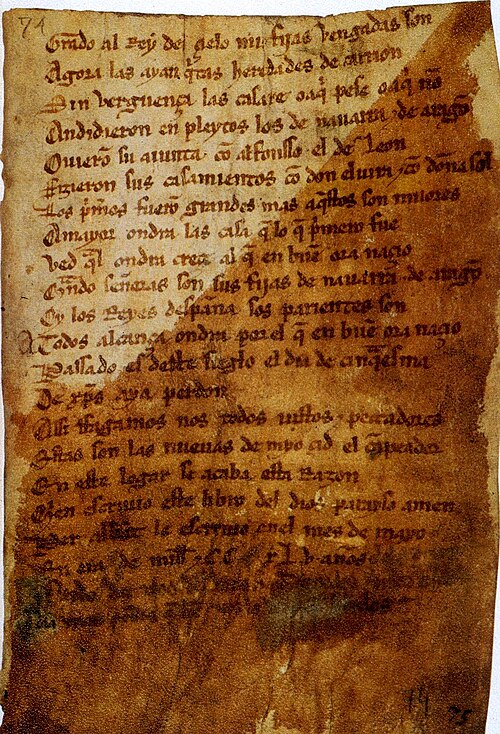 74
Grado al Rey del çielo mis fijas vengadas son
Agora las ayan q̃tas heredades de carrion
Sin verguença las casare o aq̃ pese o aq̃ nõ
Andidieron en pleytos los de nauarra ⁊ de aragõ
Ouierõ su aiunta cõ alfonsso el de Leon
Fizieron sus casamientos cõ don eluira ⁊ cõ doña sol
Los p̃meros fuerõ grandes mas aq̃stos son miiores
A mayor ondra las casa q̃ lo q̃ p̃mero fue
Ved q̃l ondra creçe al q̃ en buẽ ora naçio
Quãdo señoras son sus fijas de nauarra ⁊ de aragõ
Oy los Reyes despaña sos parientes son
A Todos alcança ondra por el q̃ en buẽ ora naçio
Passado es deste sieglo el dia de cinq̃esma
De xp̃s aya perdon
Assi ffagamos nos todos iustos ⁊ pecadores
Estas son las nueuas de myo çid el cãpeador
En este logar se acaba esta Razon
Quien escriuio este libro del dios parayso amen
Per abbat le escriuio enel mes de mayo
En era de mill ⁊ CC xL v años
14
75